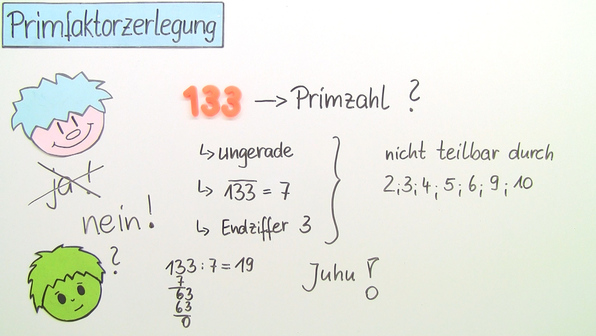 Primfaktorzerlegung
133 → Primzahl ?
↳ ungerade
↳ 1̅3̅3̅ = 7
↳ Endziffer 3
nicht teilbar durch
2; 3; 4; 5; 6; 9; 10
ja!
nein!
?
133 : 7 = 19
7
63
63
0
Juhu !